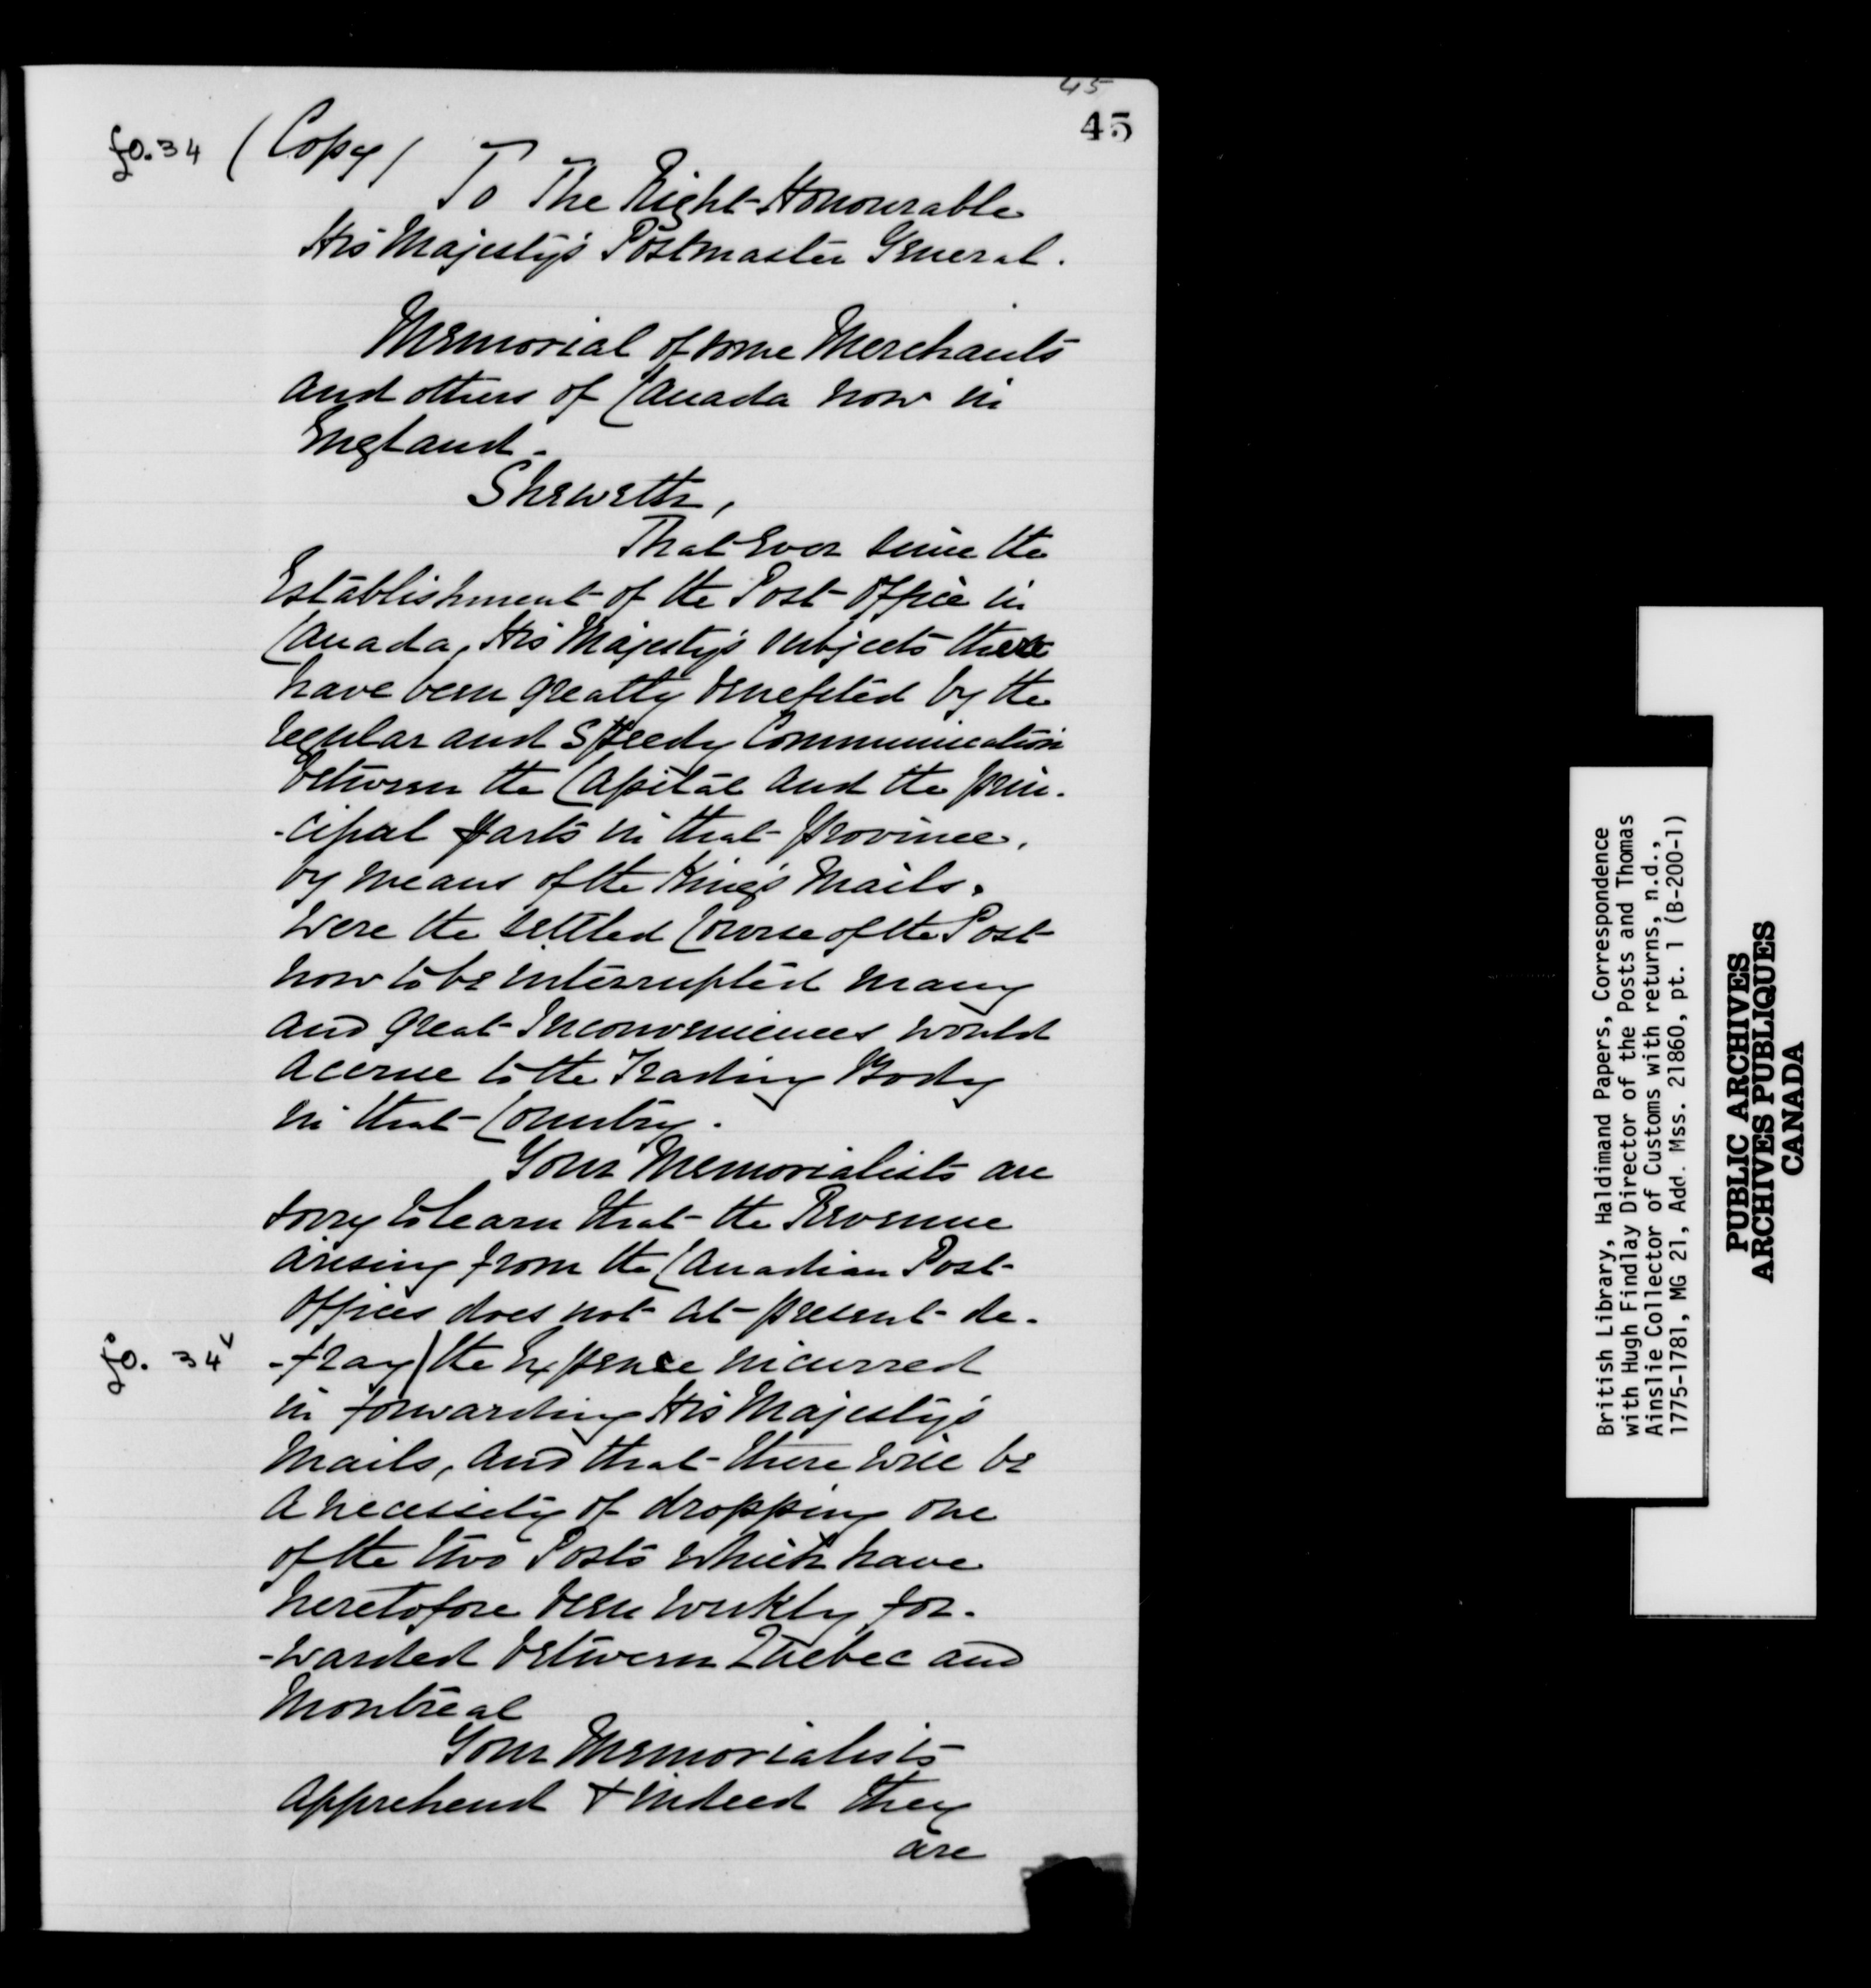 45
45
fo. 34 (Copy)
To The Right Honourable
His Majesty's Postmaster General.
Memorial of some Merchants
and others of Canada now in
England.
Sheweth,
That Ever since the
Establishment of the Post Office in
Canada, His Majesty's subjects there
have been greatly benefited by the
regular and Speedy Communication
between the Capital and the prin-
-cipal parts in that province,
by means of the King's Mails.
Were the settled Course of the Post
now to be interrupted many
and great Inconveniences would
accrue to the Trading Body
in that Country.
Your Memorialists are
sorry to learn that the Revenue
arising from the Canadian Post
Offices does not at present de-
fo. 34v -fray) the Expence incurred
in forwarding His Majesty's
Mails, and that there will be
a necessity of dropping one
of the two Posts which have
heretofore been weekly for-
-warded between Quebec and
Montreal
Your Memorialists
apprehend & indeed they
are
British Library, Haldimand Papers, Correspondence
with Hugh Findlay Director of the Posts and Thomas
Ainslie Collector of Customs with returns, n.d.,
1775-1781, MG 21, Add. Mss. 21860, pt. 1 (B-200-1)
PUBLIC ARCHIVES
ARCHIVES PUBLIQUES
CANADA